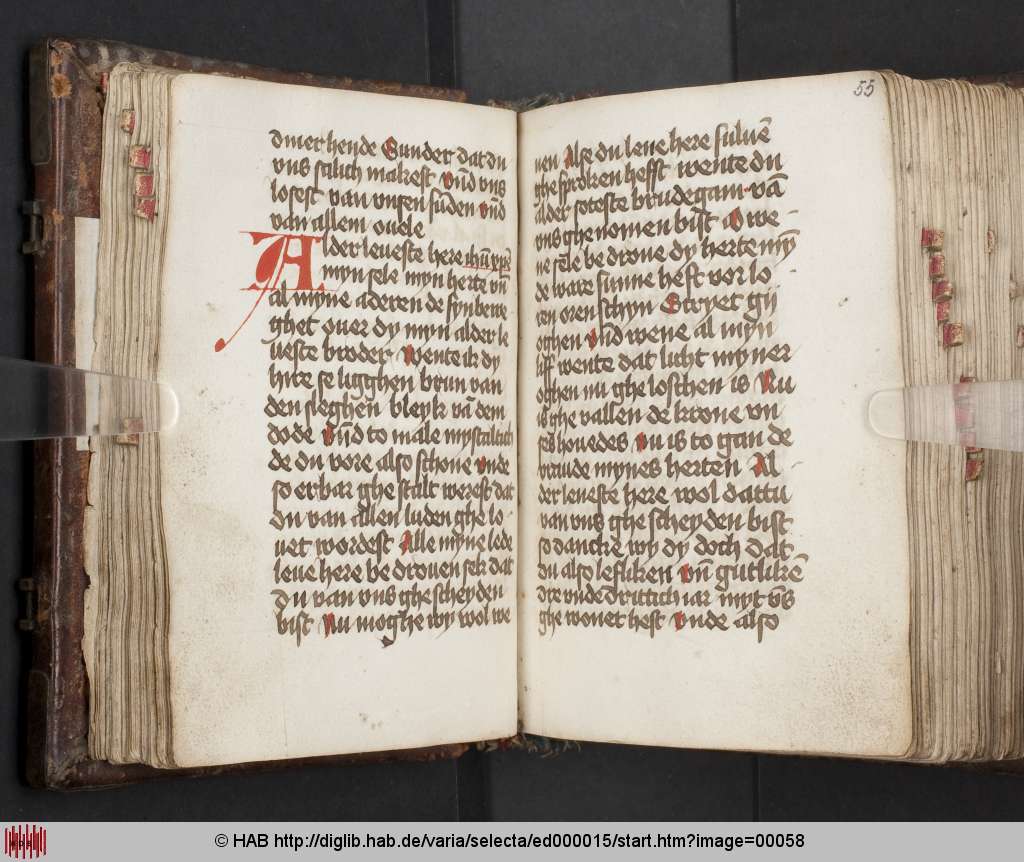 dmerhende Sunder dat du
vns salich makest vnd vns
losest van vnsen sunden vnd
van allem ouele
Alder leueste here ihū xp̄e
myn sele myn herte vn̄
al myne aderen de synbewe
ghet ouer dy myn alder le
ueste broder Wente ik dy
hire se ligghen brun van
den sleghen bleyk vā dem
dode vnd to male mystaltich
de du vore also schone vnde
so erbar ghe stalt werest dat
du van allen luden ghe lo
uet wordest Alle myne lede
leue here be drouen sek dat
du van vns ghe scheyden
bist Nu moghe wy wol we
55
nen Alse du leue here suluē
ghe sproken hefft wente du
alder soteste brudegam vā
vns ghe nomen bist O we
ne sele be droue dy herte mȳ
de ware sunne heft vor lo
ren oren schyn Screyet gy
oghen vnd wene al myn
liff wente dat lucht myner
oghen nu ghe loschen is Nu
is ghe vallen de krone vn
ses houedes nu is to gan de
vraude mynes herten Al
der leueste here wol dattu
van vns ghe scheyden bist
so dancke wy dy doch dat
du also lefliken vn̄ gutlikē
dre vnde drittich iar myt vns
ghe wonet hest vnde also
© HAB http://diglib.hab.de/varia/selecta/ed000015/start.htm?image=00058